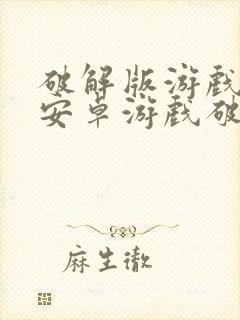 破解版游戏
安卓游戏破
麻生徹